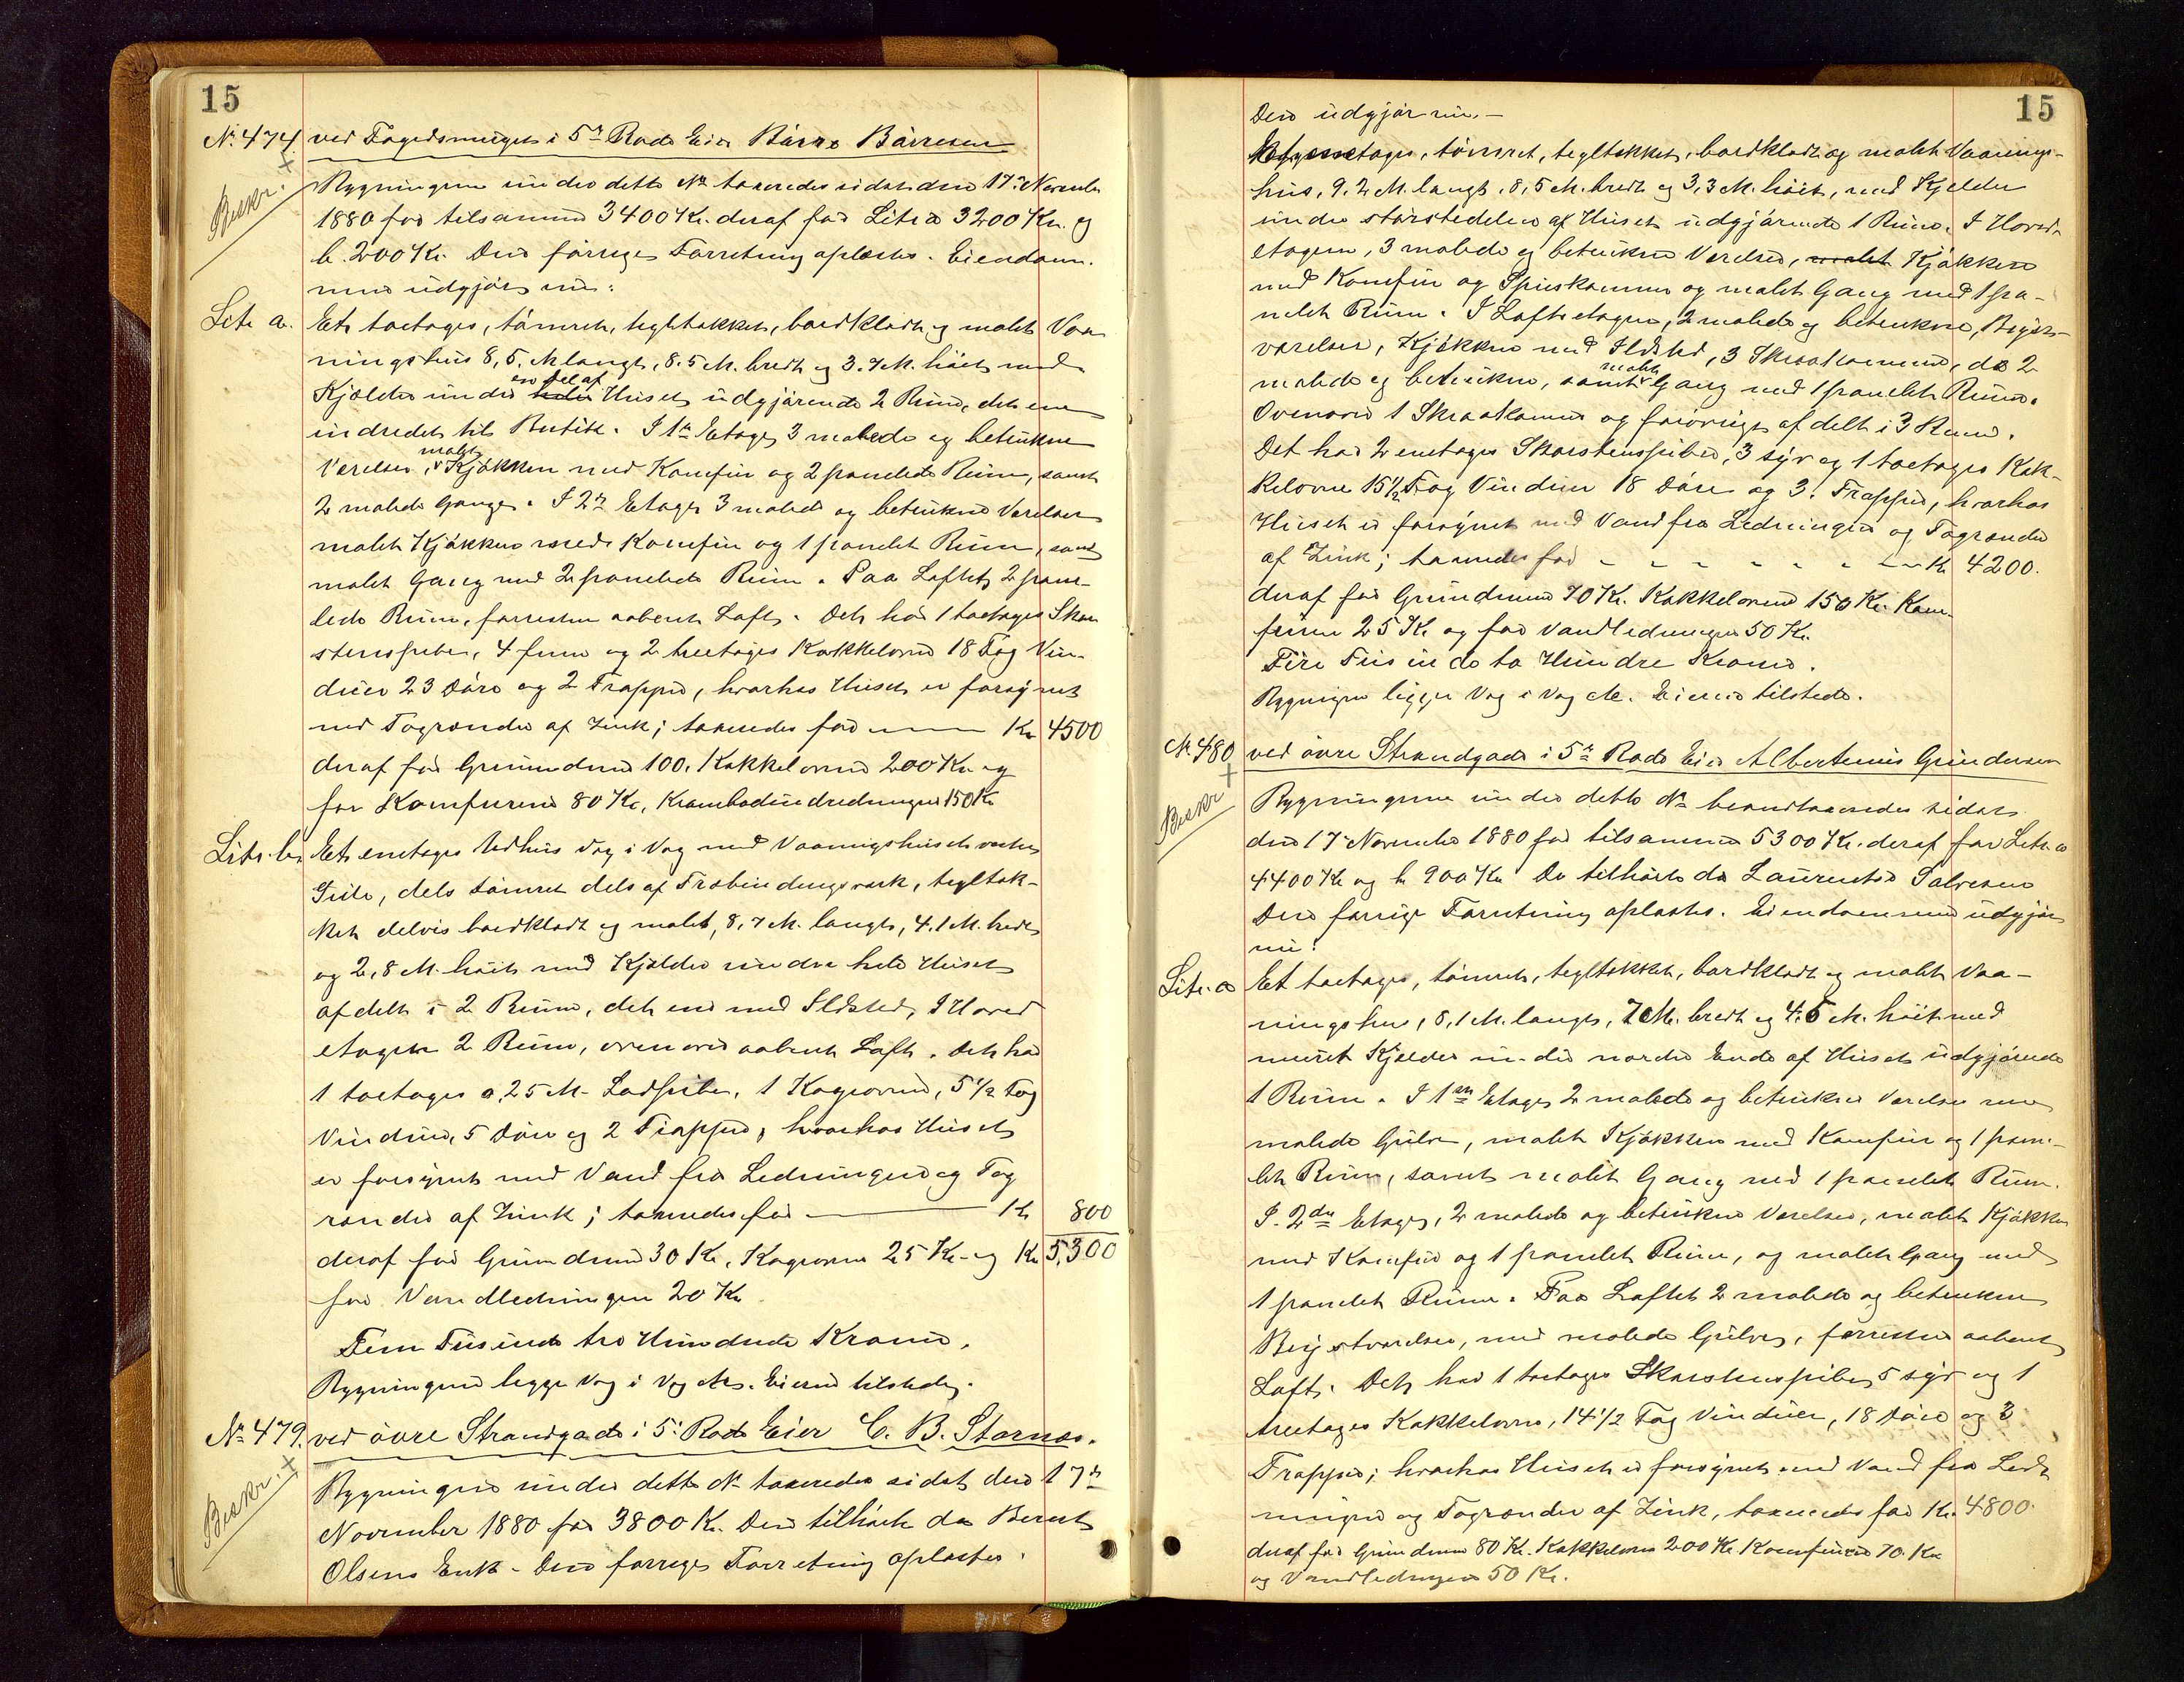 15
No. 474 ved Fogedsmuget i 5te Rode Eier Börre Börresen
Beskr. +
Bygningerne under dette No taxeredes sidst den 17de November
1880 for tilsammen 3400 Kr. deraf for Litra a 3200 Kr. og
b. 200 Kr. Den forrige Forretning oplæstes. Eiendom-
men udgjör nu:
Litr a. Et toetages, tömret, tegltækket, bordklædt og malet Vaa
ningshus 8,5 M langt, 8.5 M. bredt og 3.7 M. höit med
en Del af
Kjælder under hele Huset udgjörende 2 Rum, det ene
indredet til Butik. I 1ste Etage 3 malede og betrukne
malet
Værelser, Kjökken med Komfur og 2 panelede Rum, samt
2 malede Gange. I 2den Etage 3 malede og betrukne Værelser
malet Kjökken med Komfur og 1 panelet Rum, samt
malet Gang med 2 panelede Rum. Paa Loftet 2 pane-
lede Rum, forresten aabent Loft. Det har 1 toetages Skor
stenspibe, 4 fyrer og 2 treetages Kakkelovne 18 Fag Vin-
duer 23 Döre og 2 Trapper, hvorhos Huset er forsynet
med Tagrender af Zink; taxeredes for Kr 4500
deraf for Grundmur 100. Kakkelovne 200 Kr og
for Komfurene 80 Kr, Krambodindredningen 150 Kr
Litr. b. Et enetages Udhus Væg i Væg med Vaaningshusets vestre
Side, dels tömret dels af Træbindingsværk, tegltæk-
ket delvis bordklædt og malet, 8,7 M. langt, 4.1 M. bredt
og 2,8 M. höit med Kjælder under hele Huset
afdelt i 2 Rum, det ene med Ildsted, I Hoved
etagen 2 Rum, ovenover aabent Loft. Det har
1 toetages 0,25 M. Ladpibe, 1 Kogeovn, 5 1/2 Fag
Vinduer, 5 Döre og 2 Trapper, hvorhos Huset
er forsynet med Vand fra Ledningen og Tag
render af Zink; taxeredes for Kr 800
deraf for Grundmur 30 Kr, Kogeovne 25 Kr. og Kr 5,300
for Vandledningen 20 Kr
Fem Tusinde tre Hundrede Kroner.
Bygningerne ligge Væg i Væg etc. Eieren tilstede.
No. 479. ved övre Strandgade i 5te Rode Eier C. B. Stornæs.
Beskr. +
Bygningen under dette No taxeredes sidst den 17de
November 1880 for 3800 Kr. Den tilhörte da Bernt
Olsens Enke. Den forrige Forretning oplæstes.
15
Den udgjör nu. —
Et etages, tömret, tegltækket, bordklædt og malet Vaanings-
hus, 9.2 M. langt, 8,5 M. bredt og 3,3 M. höit, med Kjelder
under störstedelen af Huset udgjörende 1 Rum. I Hoved-
etagen, 3 malede og betrukne Værelser, malet Kjökken
med Komfur og Spiskammer og malet Gang med 1 pa-
nelet Rum. I Loftsetagen, 2 malede og betrukne, Bigst-
værelser, Kjökken med Ildsted, 3 Skraakammere, de 2
malet
malede og betrukne, samt Gang med 1 panelet Rum.
Ovenover 1 Skraakammer og forövrigt afdelt i 3 Rum.
Det har 2 enetages Skorstenspiber, 3 fyr og 1 toetages Kak-
kelovne 15 1/2 Fag Vinduer 18 Döre og 3 Trapper, hvorhos
Huset er forsynet med Vand fra Ledningen og Tagrender
af Zink; taxeredes for - - - - - - - Kr 4200.
deraf for Grundmur 70 Kr. Kakkelovne 150 Kr. Kom-
furer 25 Kr og for Vandledningen 50 Kr.
Fire Tusinde to Hundre Kroner.
Bygningen ligger Væg i Væg etc. Eieren tilstede.
No. 480 ved övre Strandgade i 5te Rode Eier Albertinus Gundersen
Beskr +
Bygningerne under dette No brandtaxeredes sidst
den 17de November 1880 for tilsammen 5300 Kr. deraf for Litr. a
4400 Kr og b 900 Kr De tilhörte da Laurentse Salvesen
Den forrige Forretning oplæstes. Eiendommen udgjör
nu:
Litr. a Et toetages, tömret, tegltækket, bordklædt og malet Vaa-
ningshus, 8,1 M. langt, 7 M. bredt og 4.5 M. höit med
muret Kjelder under nordre Ende af Huset udgjörende
1 Rum. I 1ste Etage 2 malede og betrukne Værelser med
malede Gulve, malet Kjökken med Komfur og 1 pane-
let Rum, samt malet Gang med 1 panelet Rum.
I 2den Etage, 2 malede og betrukne Værelser, malet Kjökken
med Komfur og 1 panelet Rum, og malet Gang med
1 panelet Rum. Paa Loftet 2 malede og betrukne
Bigstværelser, med malede Gulve, forresten aabent
Loft. Det har 1 toetages Skorstenspibe, 5 fyr og 1
treetages Kakkelovne, 14 1/2 Fag Vinduer, 18 Döre og 3
Trapper; hvorhos Huset er forsynet med Vand fra Led-
ningen og Tagrender af Zink, taxeredes for Kr. 4800.
deraf for Grundmur 80 Kr. Kakkelovne 200 Kr. Komfurer 70. Kr
og Vandledningen 50 Kr.